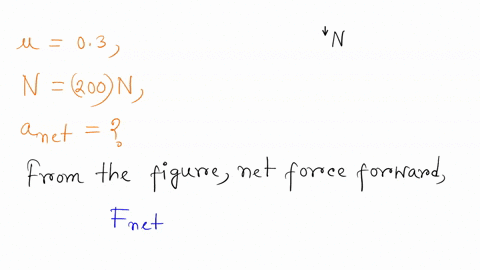 u = 0.3,
↓N
N = (200)N,
a net = ?
From the figure, net force forward,
Fnet